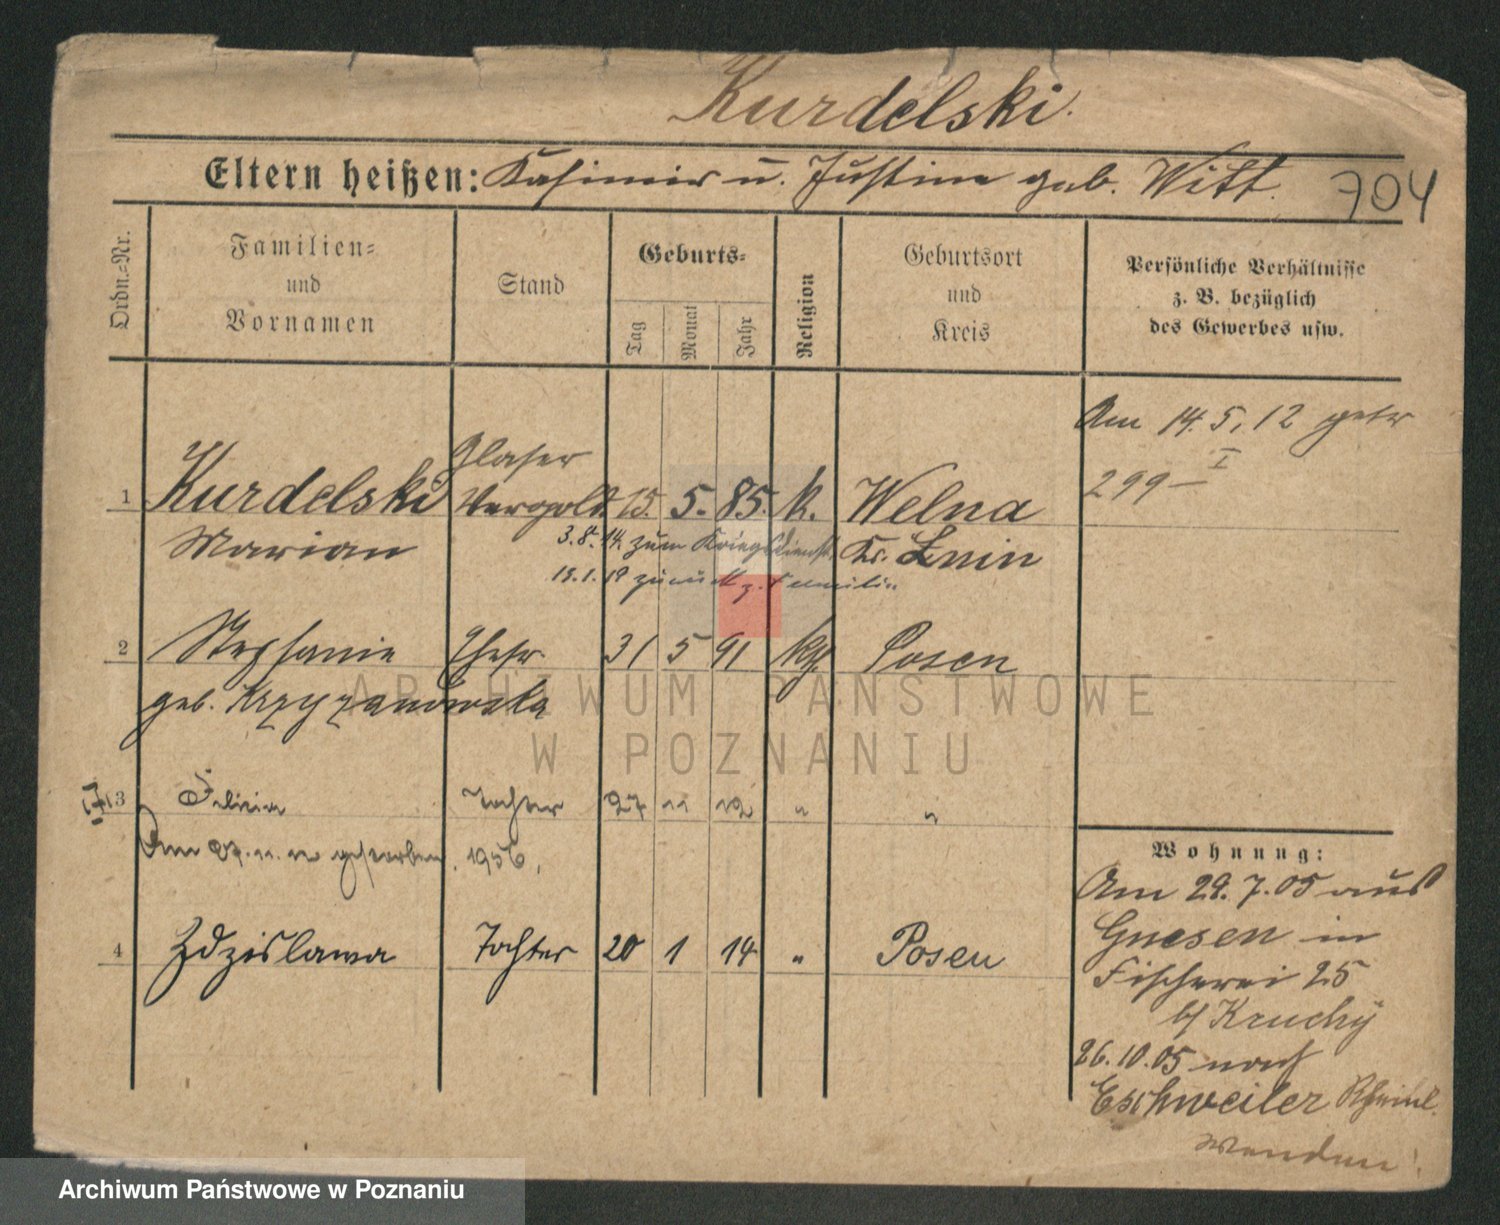 Kurdelski.
Eltern heißen: Kasimir u. Justine geb. Witt.
704
Ordn.-Nr.
Familien-
und
Vornamen
Stand
Geburts-
Tag
Monat
Jahr
Religion
Geburtsort
und
Kreis
Persönliche Verhältnisse
z. B. bezüglich
des Gewerbes usw.
Am 14.5.12 getr
I
299
Glaser
1 Kurdelski Vergold. 15. 5. 85. k. Welna
Marian
Kr. Znin
3.8.14. zum Kriegsdienst.
13.1.19 zurück z. Familie
2 Stephanie Ehefr. 31 5 91 kth. Posen
geb. Krzyzanowska
ARCHIWUM PAŃSTWOWE
W POZNANIU
3 Felicia Tochter 27 11 12 " "
Am 27.11.12 gestorben. 1956.
4 Zdzislawa Tochter 20 1 14 " Posen
Wohnung:
Am 29.7.05 aus
Gnesen in
Fischerei 25
b/ Kruchy
26.10.05 nach
Eschweiler Rheinl.
wenden!
Archiwum Państwowe w Poznaniu